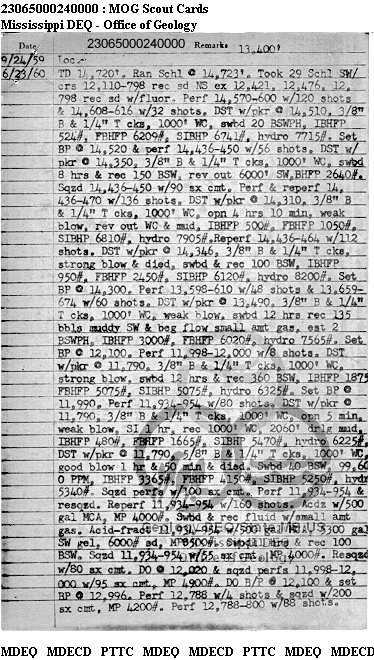 23065000240000 : MOG Scout Cards
Mississippi DEQ - Office of Geology
Date 23065000240000 Remarks 13,400'
9/24/59 Loc.
6/23/60 TD 14,720'. Ran Schl @ 14,723'. Took 29 Schl SW/
crs 12,110-798 rec sd NS ex 12,421, 12,476, 12,
798 rec sd w/fluor. Perf 14,570-600 w/120 shots
& 14,608-616 w/32 shots. DST w/pkr @ 14,510, 3/8"
B & 1/4" T cks, 1000' WC, swbd 20 BSWPH, IBHFP
524#, FBHFP 6209#, SIBHP 6741#, hydro 7715#. Set
BP @ 14,520 & perf 14,436-450 w/56 shots. DST w/
pkr @ 14,350, 3/8" B & 1/4" T cks, 1000' WC, swbd
8 hrs & rec 150 BSW, rev out 6000' SW, BHFP 2640#.
Sqzd 14,436-450 w/90 sx cmt. Perf & reperf 14,
436-470 w/136 shots. DST w/pkr @ 14,310, 3/8" B
& 1/4" T cks, 1000' WC, opn 4 hrs 10 min, weak
blow, rev out WC & mud, IBHFP 500#, FBHFP 1050#,
SIBHP 6810#, hydro 7905#. Reperf 14,436-464 w/112
shots. DST w/pkr @ 14,346, 3/8" B & 1/4" T cks,
strong blow & died, swbd & rec 100 BSW, IBHFP
950#, FBHFP 2450#, SIBHP 6120#, hydro 8200#. Set
BP @ 14,300. Perf 13,598-610 w/48 shots & 13,659-
674 w/60 shots. DST w/pkr @ 13,490, 3/8" B & 1/4"
T cks, 1000' WC, weak blow, swbd 12 hrs rec 135
bbls muddy SW & beg flow small amt gas, est 2
BSWPH, IBHFP 3000#, FBHFP 6020#, hydro 7565#. Set
BP @ 12,100. Perf 11,998-12,000 w/8 shots. DST
w/pkr @ 11,790, 3/8" B & 1/4" T cks, 1000' WC,
strong blow, swbd 12 hrs & rec 360 BSW, IBHFP 1875
FBHFP 5075#, SIBHP 5075#, hydro 6325#. Set BP @
11,990. Perf 11,934-954 w/80 shots. DST w/pkr @
11,790, 3/8" B & 1/4" T cks, 1000' WC, opn 5 min,
weak blow, SI 1 hr, rec 1000' WC, 2060' drlg mud,
IBHFP 480#, FBHFP 1665#, SIBHP 5470#, hydro 6225#.
DST w/pkr @ 11,790, 5/8" B & 1/4" T cks, 1000' WC,
good blow 1 hr & 50 min & died. Swbd 40 BSW, 99,60
0 PPM, IBHFP 3365#, FBHFP 4150#, SIBHP 5250#, hydro
5340#. Sqzd perfs w/100 sx cmt. Perf 11,934-954 &
resqzd. Reperf 11,934-954 w/160 shots. Acdz w/500
gal MCA, MP 4000#. Swbd & rec fluid w/small amt
gas. Acid-fracd 11,934-954 w/500 gal 3300 gal
SW gel, 6000# sd, MP 8500#. Swbd hrs & rec 100
BSW. Sqzd 11,934-954 w/55 sx cmt, MP 4000#. Resqzd
w/80 sx cmt. DO @ 12,020 & sqzd perfs 11,998-12,
000 w/95 sx cmt, MP 4900#. DO B/P @ 12,100 & set
BP @ 12,996. Perf 12,788 w/4 shots & sqzd w/200
sx cmt, MP 4200#. Perf 12,788-800 w/88 shots.
MDEQ MDECD PTTC MDEQ MDECD PTTC MDEQ MDECD